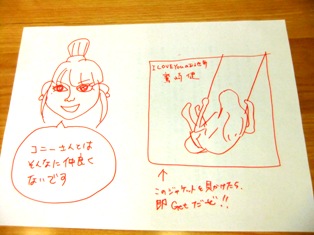 コニーさんとは
そんなに仲良く
ないです
I LOVE YOU
このジャケットを見かけたら、
即Getだぜ!!